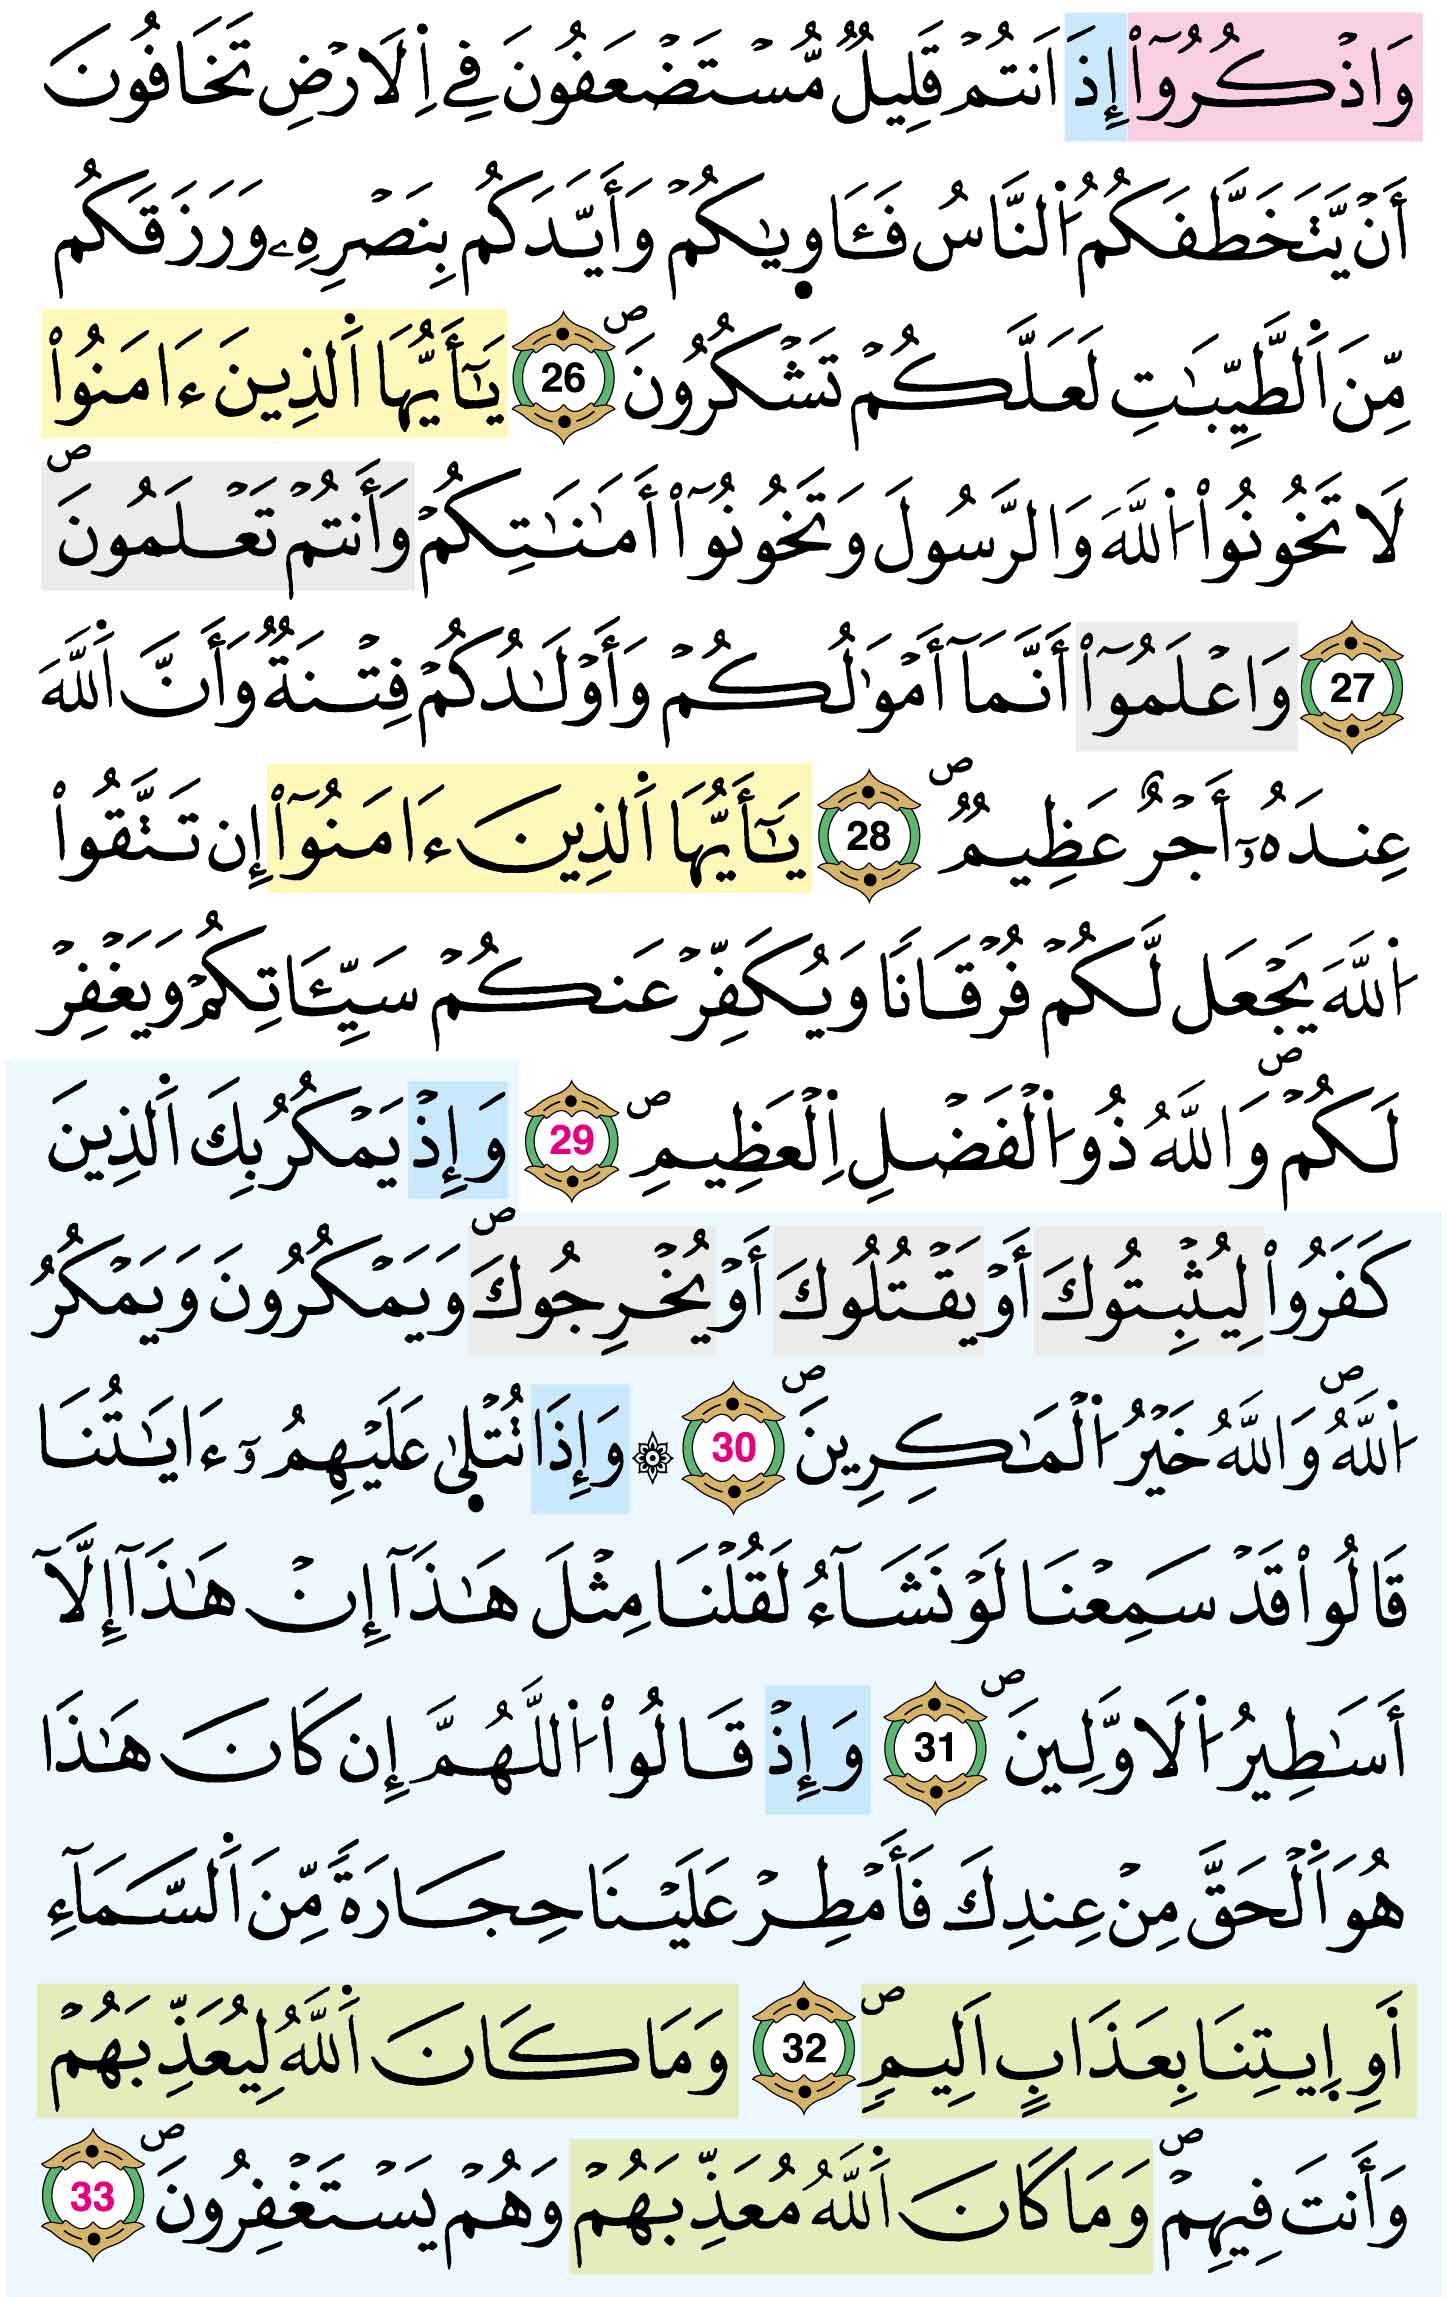 وَاذْكُرُوٓاْ إِذَ اَنتُمْ قَلِيلٌ مُّسْتَضْعَفُونَ فِے اِ۬لَارْضِ تَخَافُونَ
أَنْ يَّتَخَطَّفَكُمُ اُ۬لنَّاسُ فَـَٔاو۪يٰكُمْ وَأَيَّدَكُم بِنَصْرِهِۦ وَرَزَقَكُم
مِّنَ اَ۬لطَّيِّبَٰتِ لَعَلَّكُمْ تَشْكُرُونَۖ 26 يَٰٓأَيُّهَا اَ۬لذِينَ ءَامَنُواْ
لَا تَخُونُواْ اُ۬للَّهَ وَالرَّسُولَ وَتَخُونُوٓاْ أَمَٰنَٰتِكُمْ وَأَنتُمْ تَعْلَمُونَۖ
27 وَاعْلَمُوٓاْ أَنَّمَآ أَمْوَٰلُكُمْ وَأَوْلَٰدُكُمْ فِتْنَةٌ وَأَنَّ اَ۬للَّهَ
عِندَهُۥٓ أَجْرٌ عَظِيمٌۖ 28 يَٰٓأَيُّهَا اَ۬لذِينَ ءَامَنُوٓاْ إِن تَتَّقُواْ
اُ۬للَّهَ يَجْعَل لَّكُمْ فُرْقَانًا وَيُكَفِّرْ عَنكُمْ سَيِّـَٔاتِكُمْ وَيَغْفِرْ
لَكُمْۖ وَاللَّهُ ذُو اُ۬لْفَضْلِ اِ۬لْعَظِيمِۖ 29 وَإِذْ يَمْكُرُ بِكَ اَ۬لذِينَ
كَفَرُواْ لِيُثْبِتُوكَ أَوْ يَقْتُلُوكَ أَوْ يُخْرِجُوكَۖ وَيَمْكُرُونَ وَيَمْكُرُ
اُ۬للَّهُۖ وَاللَّهُ خَيْرُ اُ۬لْمَٰكِرِينَۖ 30 ۞ وَإِذَا تُتْل۪يٰ عَلَيْهِمُۥٓ ءَايَٰتُنَا
قَالُواْ قَدْ سَمِعْنَا لَوْ نَشَآءُ لَقُلْنَا مِثْلَ هَٰذَآ إِنْ هَٰذَآ إِلَّآ
أَسَٰطِيرُ اُ۬لَاوَّلِينَۖ 31 وَإِذْ قَالُواْ اُ۬للَّهُمَّ إِن كَانَ هَٰذَا
هُوَ اَ۬لْحَقَّ مِنْ عِندِكَ فَأَمْطِرْ عَلَيْنَا حِجَارَةً مِّنَ اَ۬لسَّمَآءِ
اَ۬وِ اِ۪يتِنَا بِعَذَابٍ اَلِيمٍۖ 32 وَمَا كَانَ اَ۬للَّهُ لِيُعَذِّبَهُمْ
وَأَنتَ فِيهِمْۖ وَمَا كَانَ اَ۬للَّهُ مُعَذِّبَهُمْ وَهُمْ يَسْتَغْفِرُونَۖ 33